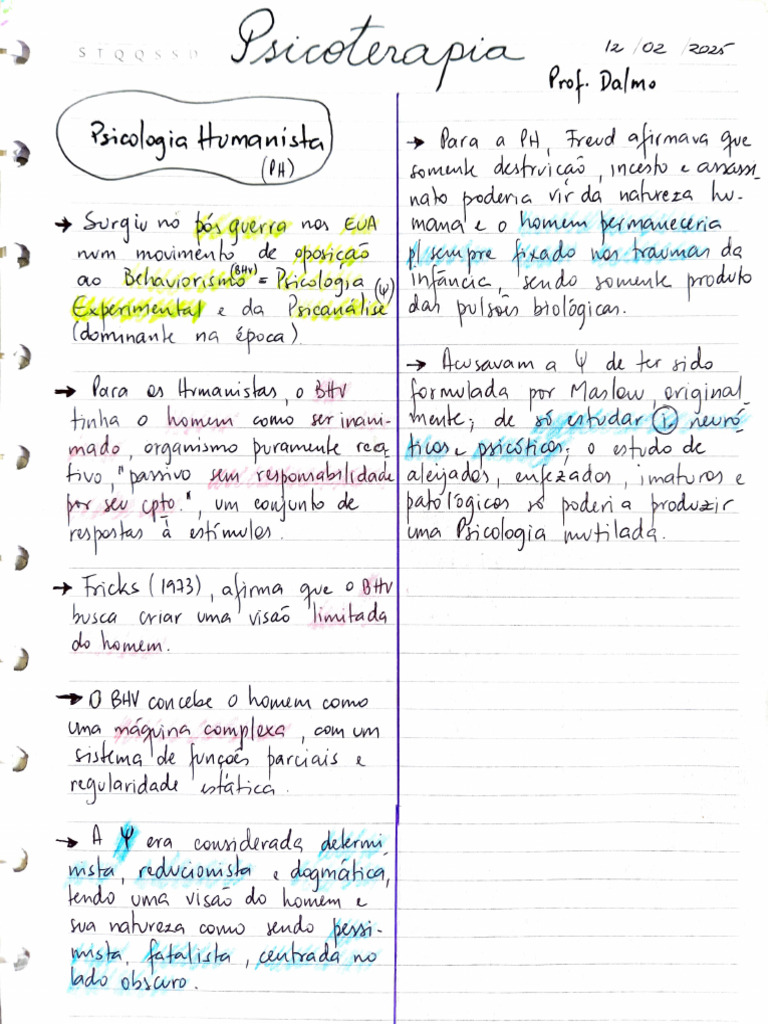 STQQSSD
Psicoterapia
12/02/2025
Prof. Dalmo
Psicologia Humanista
(PH)
→ Surgiu no pós guerra nos EUA
num movimento de oposição
ao Behaviorismo (BHV) = Psicologia
Experimental e da Psicanálise (ψ)
(dominante na época).
→ Para os Humanistas, o BHV
tinha o homem como ser inani-
mado, organismo puramente rea-
tivo, "passivo sem responsabilidade
por seu cpto.", um conjunto de
respostas à estímulos.
→ Fricks (1973), afirma que o BHV
busca criar uma visão limitada
do homem.
→ O BHV concebe o homem como
uma máquina complexa, com um
sistema de funções parciais e
regularidade estática.
→ A ψ era considerada determi
nista, reducionista e dogmática,
tendo uma visão do homem e
sua natureza como sendo pessi-
mista, fatalista, centrada no
lado obscuro.
→ Para a PH, Freud afirmava que
somente destruição, incesto e assassi
nato poderia vir da natureza hu-
mana e o homem permaneceria
p/ sempre fixado nos traumas da
infância, sendo somente produto
das pulsões biológicas.
→ Acusavam a ψ de ter sido
formulada por Maslow, original-
mente; de só estudar i. neuró-
ticos e psicóticos; o estudo de
aleijados, enfezados, imaturos e
patológicos só poderia produzir
uma Psicologia mutilada.